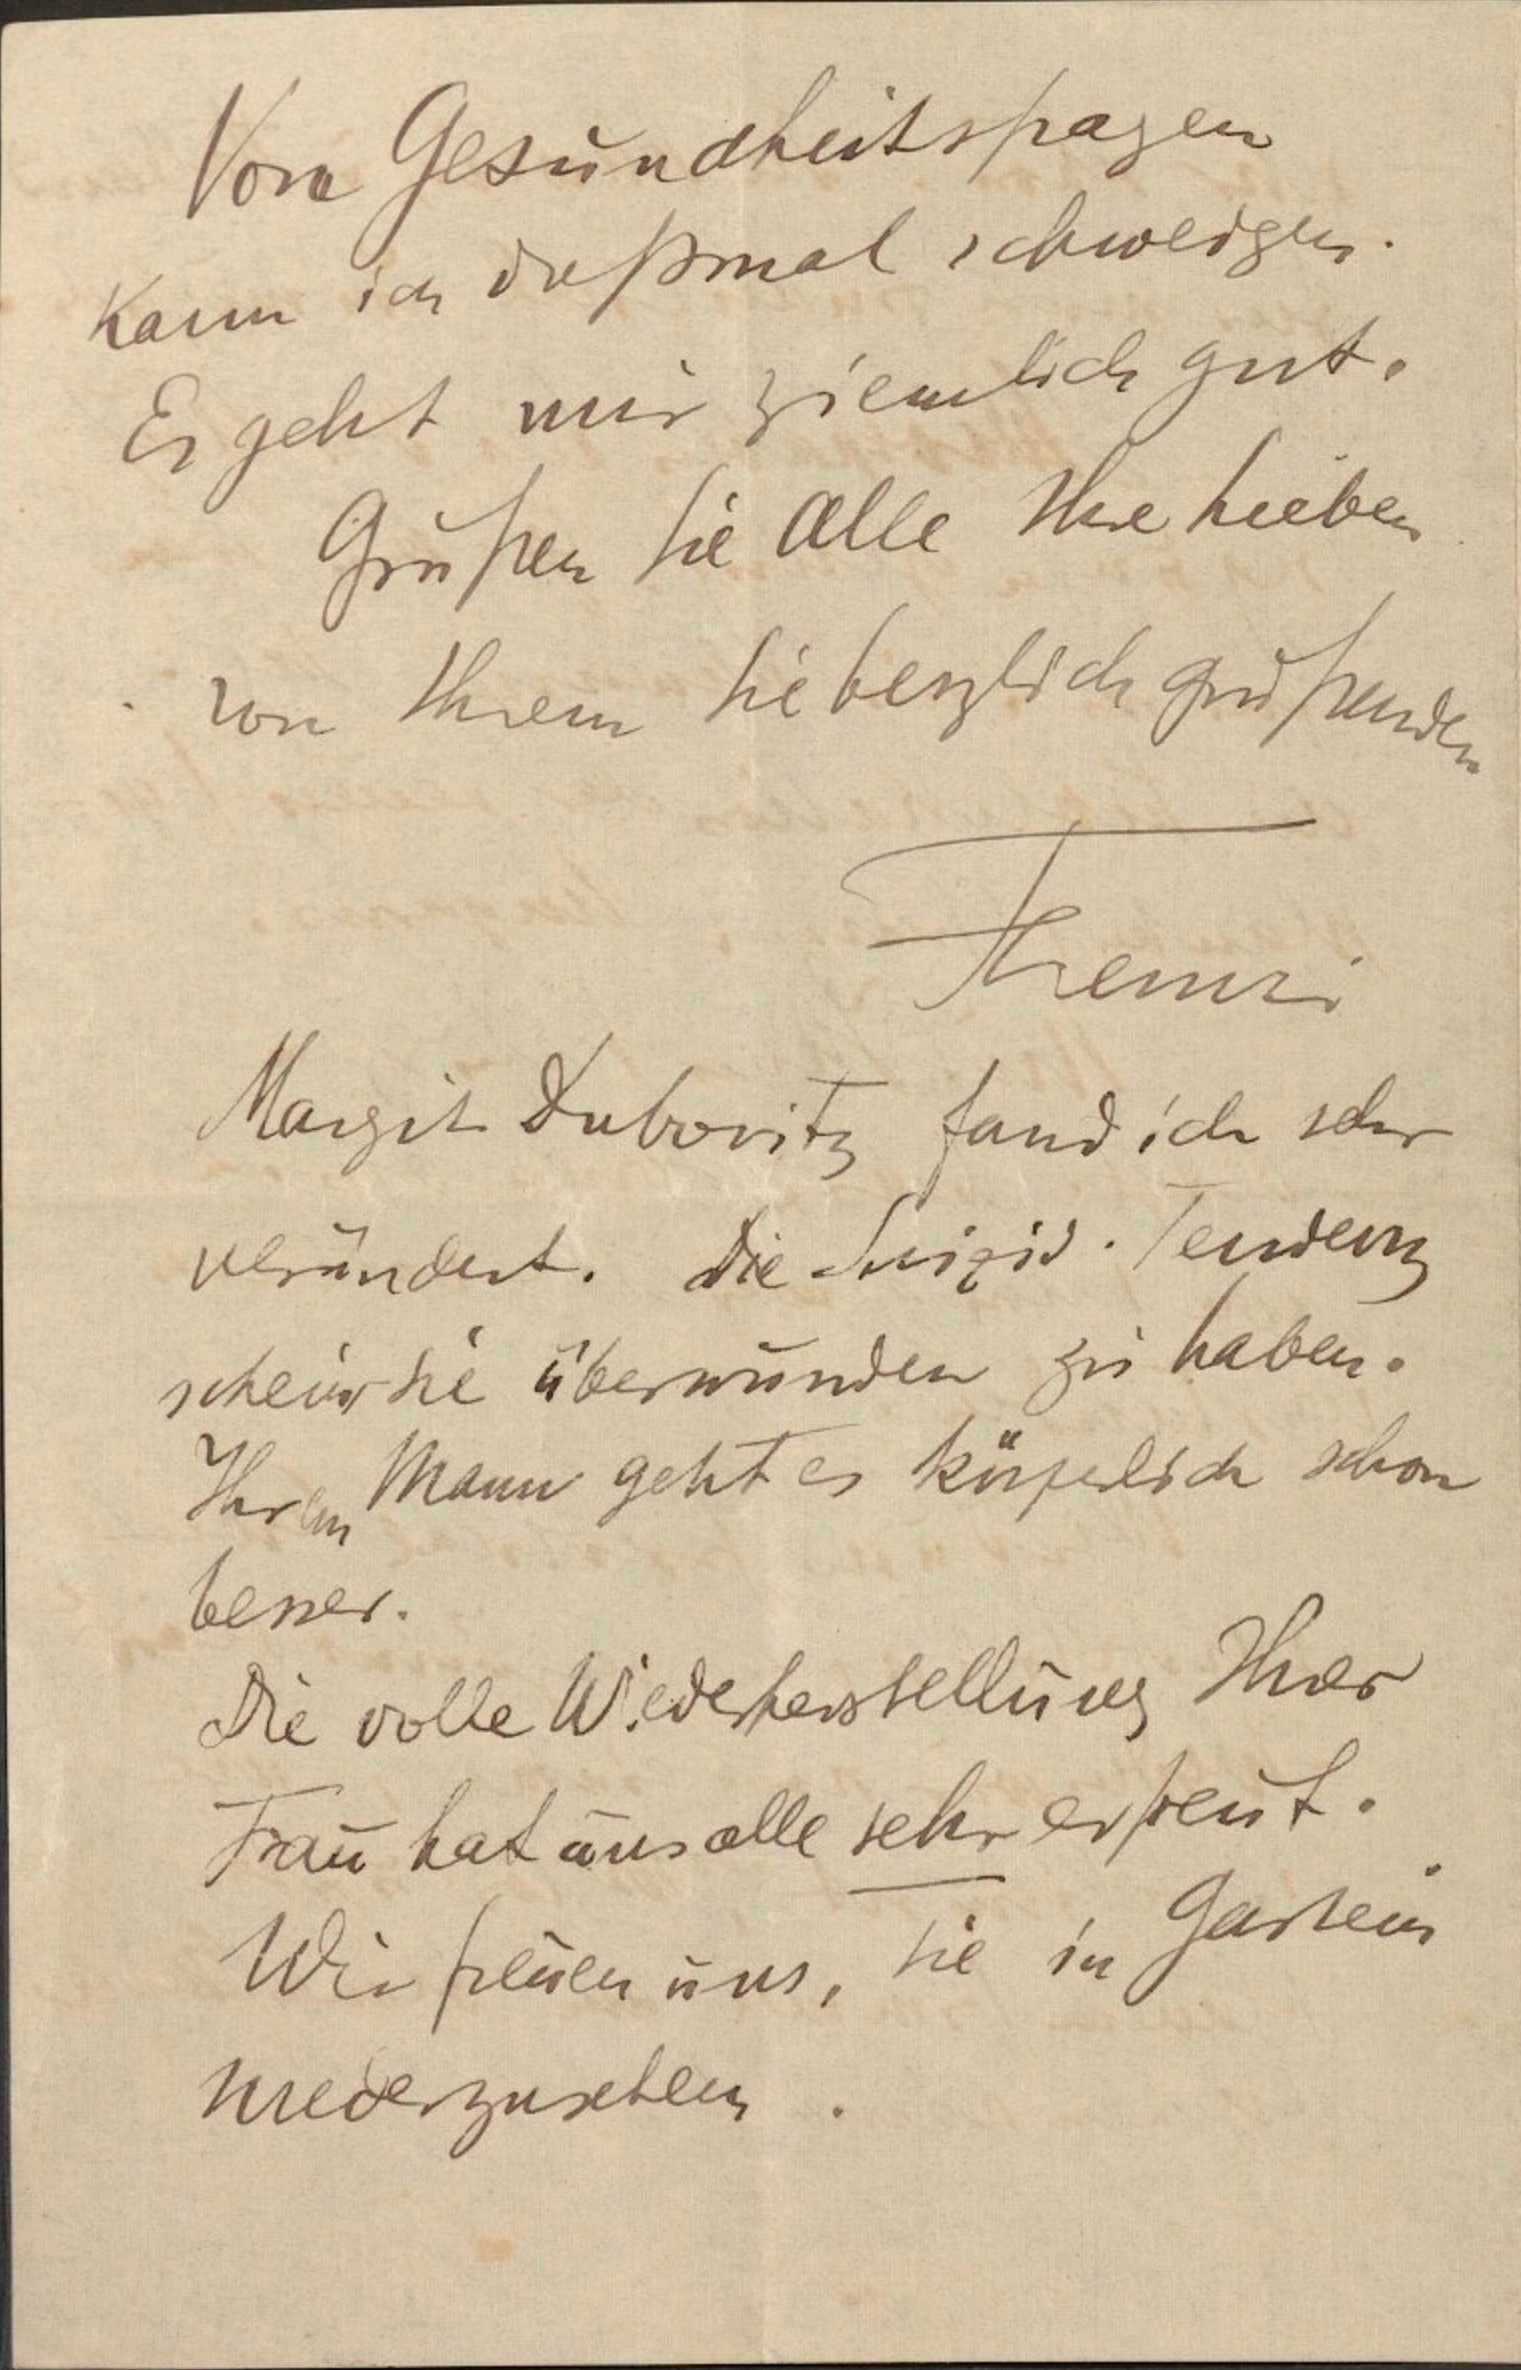 Von Gesundheitsfragen
kann ich dießmal schweigen.
Es geht mir ziemlich gut.
Grüßen Sie alle Ihre Lieben
von Ihrem Sie herzlich grüßenden
Ferenczi
Margit Dubovitz fand ich sehr
verändert. Die Suizid-Tendenz
scheint sie überwunden zu haben.
Ihrem Mann geht es körperlich schon
besser.
Die volle Wiederherstellung Ihrer
Frau hat uns alle sehr erfreut.
Wir freuen uns, Sie in Gastein
wiederzusehen.